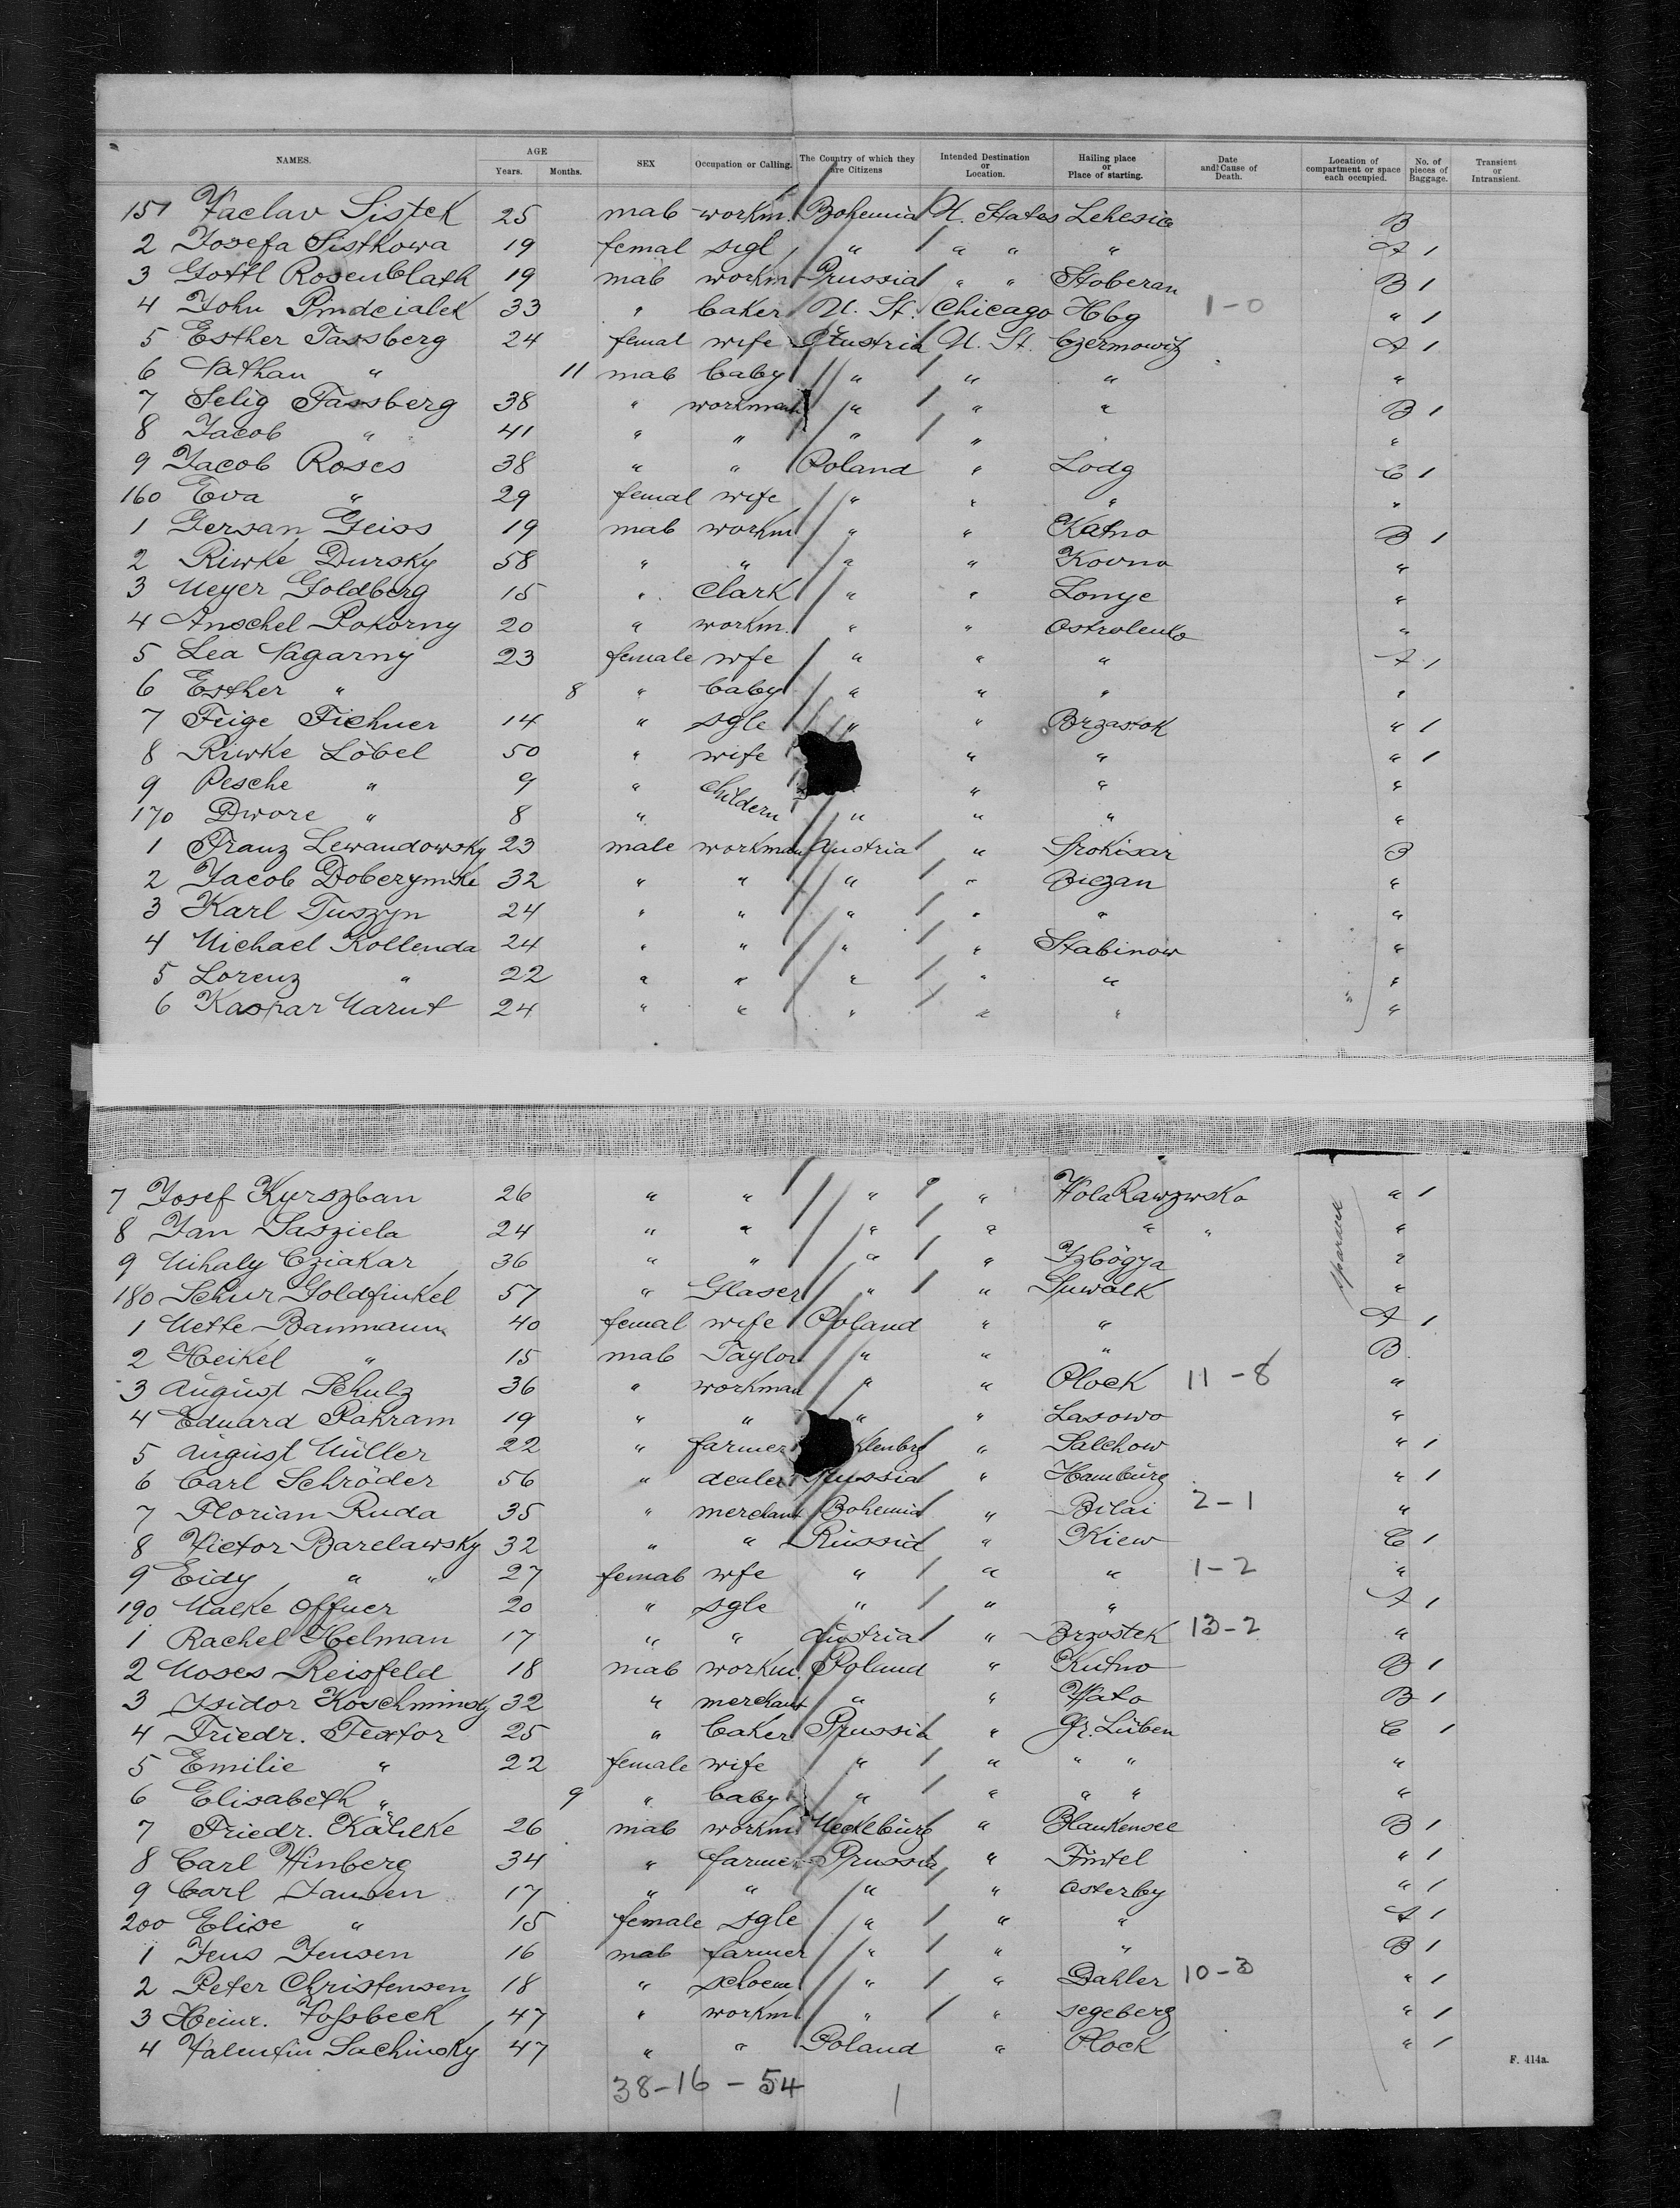 NAMES. AGE Years. Months. SEX Occupation or Calling. The Country of which they are Citizens Intended Destination or Location. Hailing place or Place of starting. Date and Cause of Death. Location of compartment or space each occupied. No. of pieces of Baggage. Transient or Intransient.
151 Vaclav Sistek 25 male workm. Bohemia U. States Lehesic B
2 Josefa Sistkowa 19 femal sigl " " " " A 1
3 Gottl Rosenblath 19 male workm Prussia " " Stoberan B 1
4 John 33 " baker U. St. Chicago Hbg 1-0 " 1
5 Esther Fassberg 24 femal wife Austria U. St. Czernowitz A 1
6 Nathan " 11 male baby " " " "
7 Selig Fassberg 38 " workman " " " B 1
8 Jacob " 41 " " " " "
9 Jacob Roses 38 " " Poland " Lodg C 1
160 Eva " 29 femal wife " " " "
1 Gersan Geiss 19 male workm " " Katno B 1
2 Riwke Dursky 58 " " " " Kovno "
3 Meyer Goldberg 15 " Clark " " Lomye "
4 Anschel Pokorny 20 " workm. " " Ostrolenko "
5 Lea Nagarny 23 female wfe " " " A 1
6 Esther " 8 " baby " " " "
7 Feige Fichner 14 " sgle " " Brzastok " 1
8 Riwke Löbel 50 " wife " " " 1
9 Pesche " 9 " childern " " "
170 Dwore " 8 " " " " "
1 Franz Lewandowsky 23 male workman Austria " Srokisar B
2 Jacob Doberzymske 32 " " " " Biezan "
3 Karl Tuszyn 24 " " " " " "
4 Michael Kollenda 24 " " " " Stabinow "
5 Lorenz " 22 " " " " " "
6 Kaspar Marut 24 " " " " " "
7 Josef Kyrszban 26 " " " " Wola Rawzwska " 1
8 Jan Sasziela 24 " " " " " " "
9 Mihaly Cziakar 36 " " " " Izbögya "
180 Schur Goldfinkel 57 " Glaser " " Suwalk "
1 Mette Banmann 40 femal wife Poland " " A 1
2 Heikel " 15 male Taylor " " " B
3 August Schulz 36 " workman " " Plock 11-8 "
4 Eduard Pahram 19 " " " " Lasowo "
5 August Müller 22 " farmer klenbrg " Salchow " 1
6 Carl Schröder 56 " dealer Prussia " Hamburg " 1
7 Florian Ruda 35 " merchant Bohemia " Bilai 2-1 "
8 Victor Barclawsky 32 " " Russia " Kiew C 1
9 Eidy " " 27 female wfe " " " 1-2 "
190 Malke Offner 20 " sgle " " " A 1
1 Rachel Helman 17 " " Austria " Brzostek 13-2 "
2 Moses Reisfeld 18 male workm. Poland " Kutno B 1
3 Isidor Koschminsky 32 " merchant " " Wato B 1
4 Friedr. Textor 25 " baker Prussia " Gr. Lüben C 1
5 Emilie " 22 female wife " " " " "
6 Elisabeth " 9 " baby " " " " "
7 Friedr. Kählke 26 male workm Mecklburg " Blankensee B 1
8 Carl Winberg 34 " farmer Prussia " Fintel " 1
9 Carl Jansen 17 " " " " Osterby " 1
200 Elise " 15 female sgle " " " A 1
1 Jens Jensen 16 male farmer " " " B 1
2 Peter Christensen 18 " " " Dahler 10-3 " 1
3 Heinr. Vossbeck 47 " workm. " " Segeberg " 1
4 Valentin Sachinsky 47 " " Poland " Plock " 1
38-16-54 1
F. 414a.